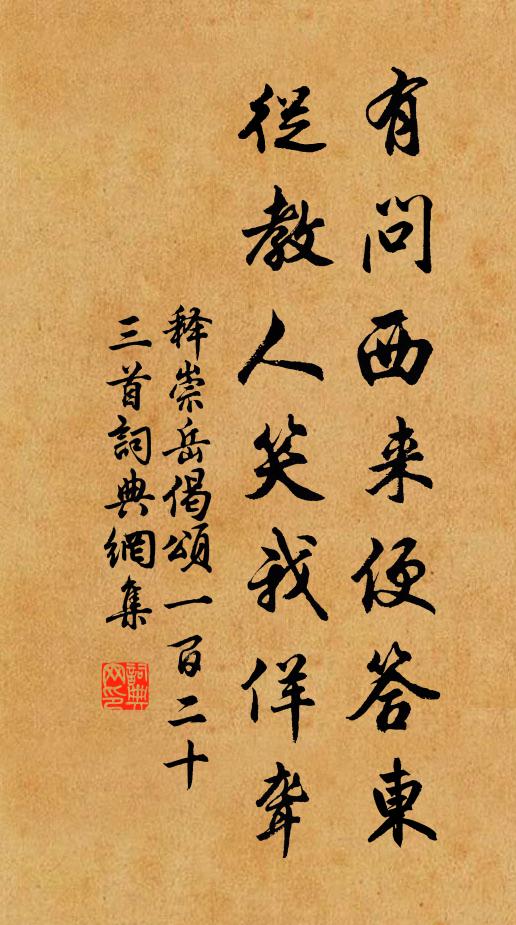 有问西来便答東
從教人笑我佯聾
释崇岳偈頌一百二十
三首詞典網集
詞典網印